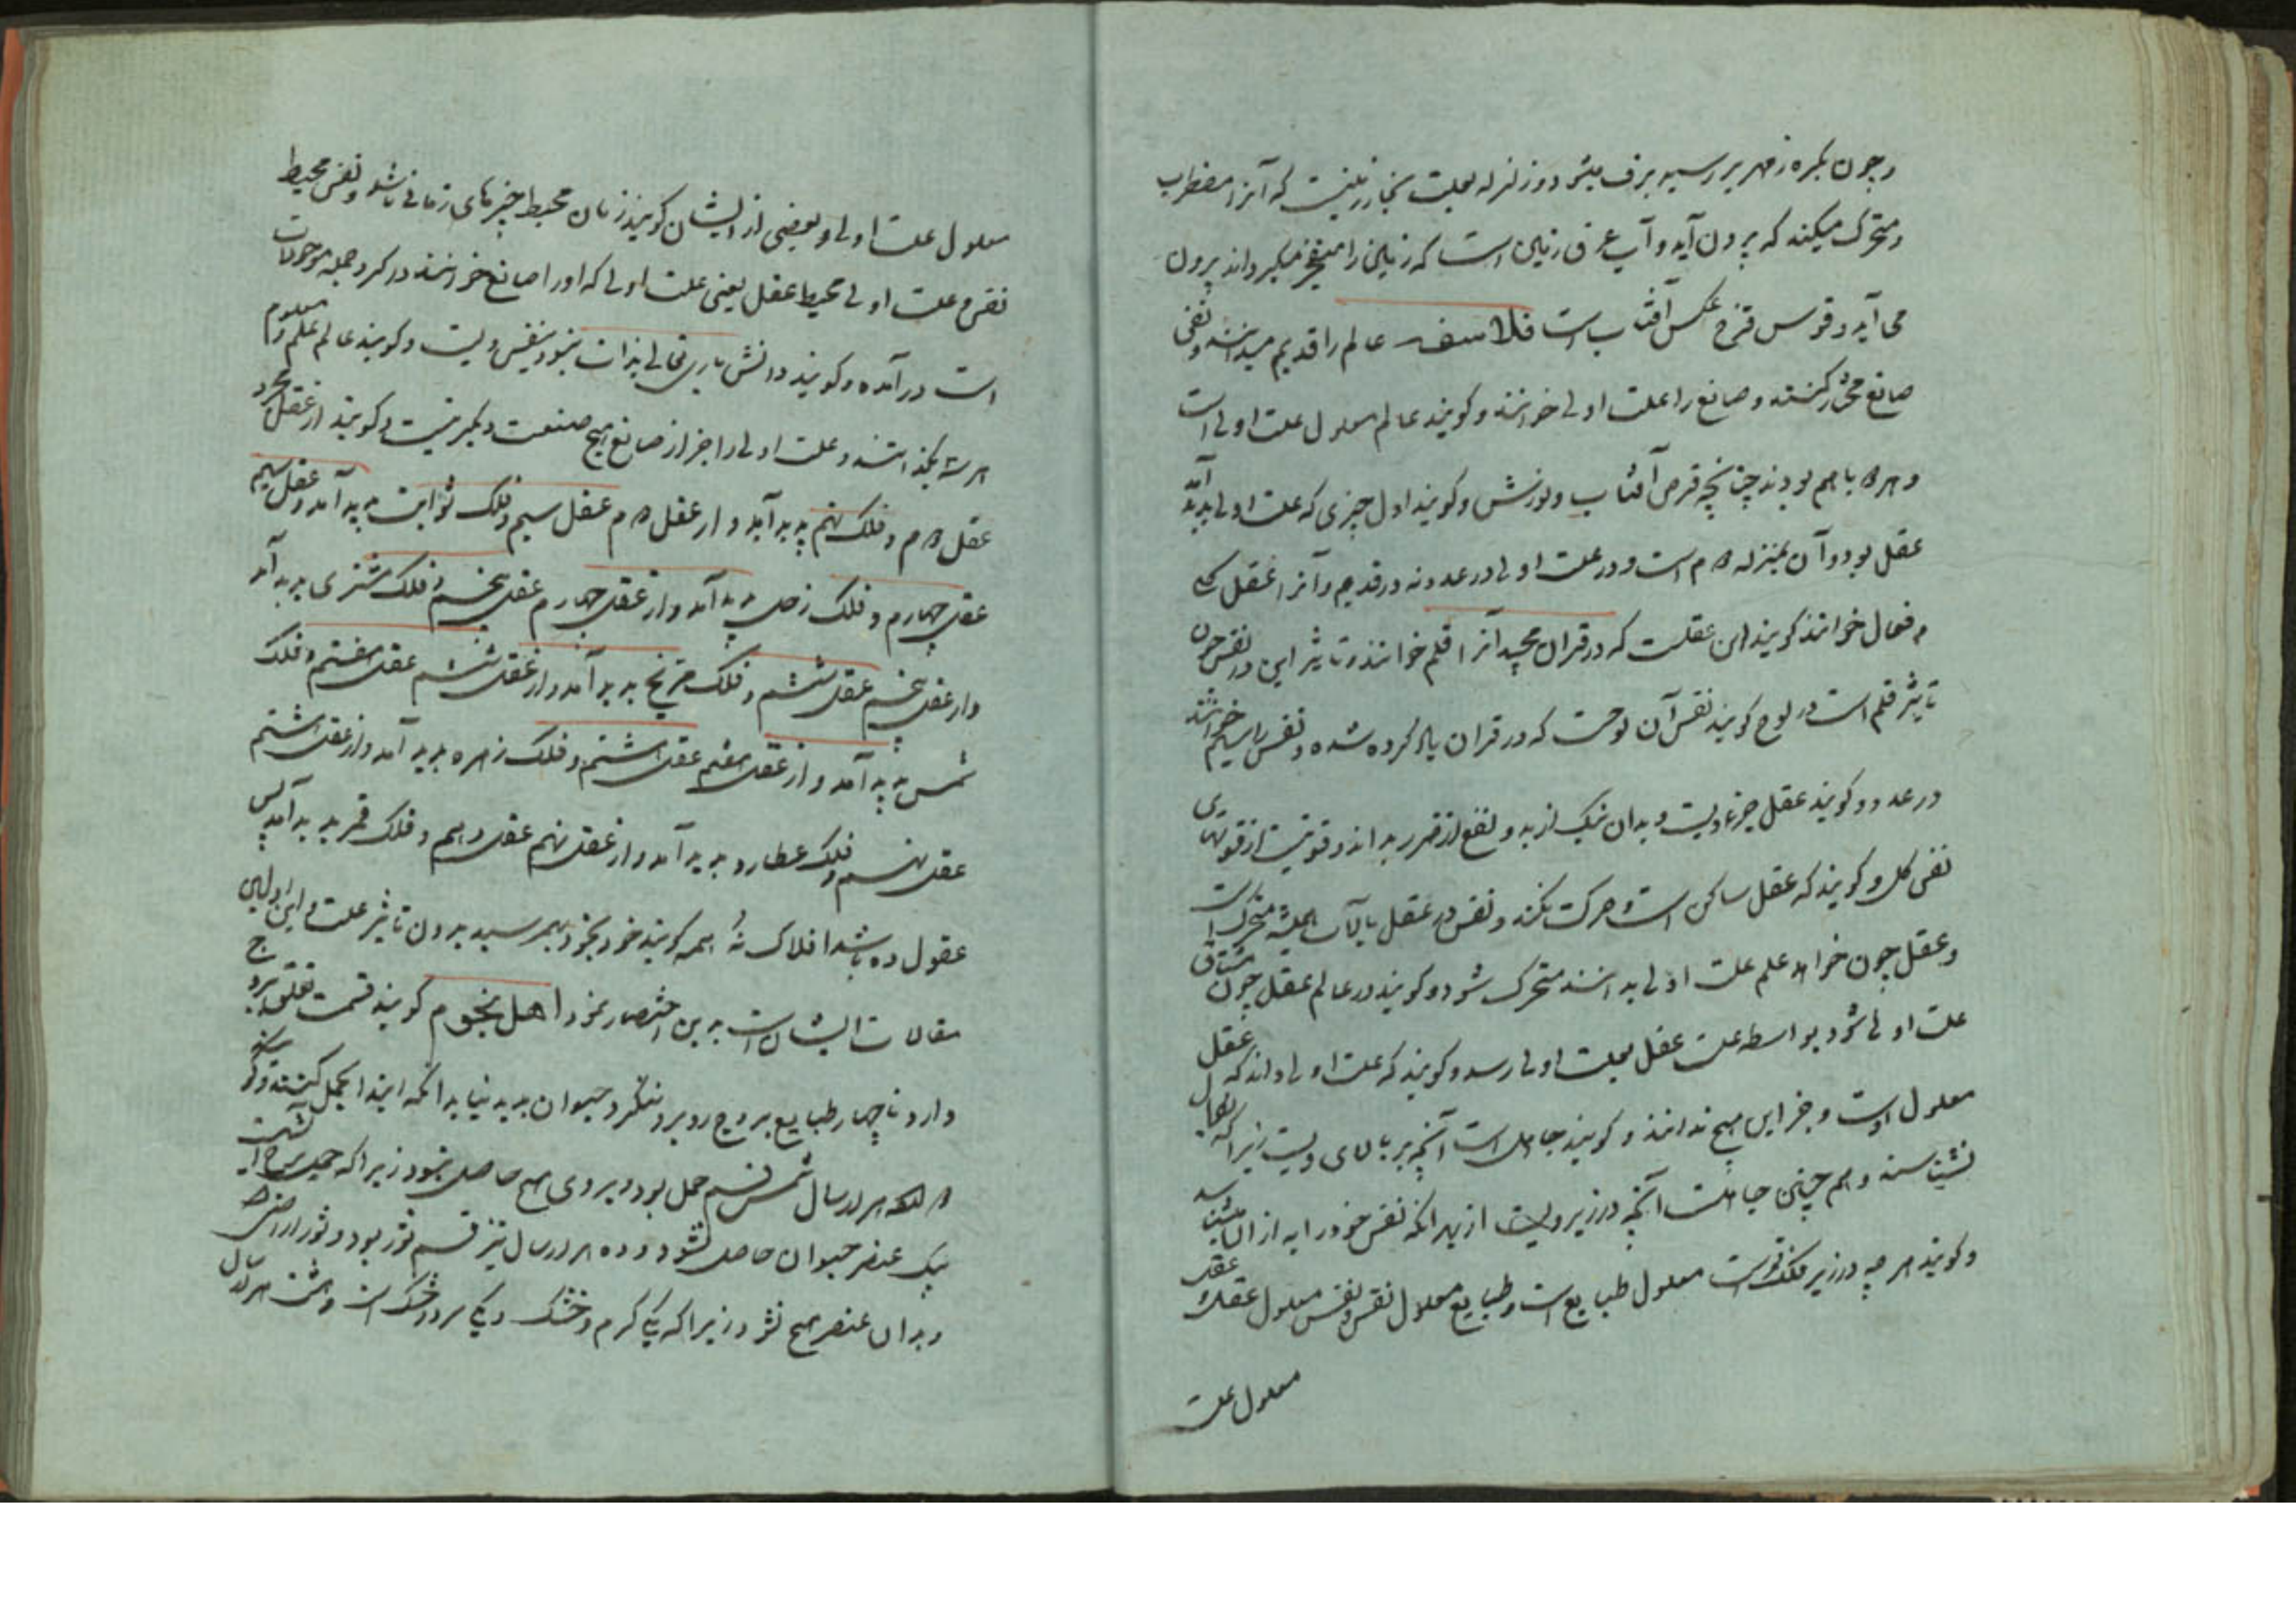 و چون بکره زمهریر رسید برف میشود و زلزله بعلت بخار زمینست که آنرا مضطرب
و متحرک میکند که بیرون آید و آب عرق زمین است که زمین را میگرداند بیرون
می آید و قوس قزح عکس آفتاب است فلاسفه عالم را قدیم میدانند و نفی
صانع مختار کنند و صانع را علت اولی خوانند و کویند عالم معلول علت اولی است
و هر دو با هم بودند چنانچه قرص آفتاب و نورش و کویند اول چیزی که علت اولی پدید آمد
عقل بود و آن بمنزله دوم است و در علت اولی در عدد نه در قدیم و آنرا عقل کلی
و فعال خوانند کویند این عقلست که در قران مجید آنرا قلم خوانند و تاثیر این در نفس چون
تاثیر قلم است در لوح کویند نفس آن لوحست که در قران یاد کرده شده و نفس را سیم خوانند
در عدد و کویند عقل جزء ویست و بدان نیک از بد و نفع از ضرر بداند و قوتیست از قوتهای
نفس کل و کویند که عقل ساکن است و حرکت نکند و نفس در عقل بالات همیشه متحرک است
و عقل چون خواهد علم علت اولی بداند متحرک شود و کویند در عالم عقل چون مشتاق
علت اولی شود بواسطه علت عقل بعلت اولی رسد و کویند که علت اولی داند که عقل
معلول اوست و جز این هیچ نداند و کویند جاهل است آنچه بر بالای ویست زیرا که بکمال
نشناسند و هم چنین جاهلست آنچه در زیر ویست از بهر آنکه نفس خود را به از ان شناسد
و کویند هر چه در زیر فلک قمرست معلول طبایع است و طبایع معلول نفس و نفس معلول عقل و عقل
معلول علت
معلول علت اولی و بعضی از ایشان کویند زمان محیط چیزهای زمانی باشد و نفس محیط
نفس و علت اولی محیط عقل یعنی علت اولی که او را صانع خوانند در کرد جمله موجودات
است در آمده و کویند دانش باری تعالی بذات خود نفس ویست و کویند عالم علم و معلوم
هر سه یکند و علت اولی را جز از صانع هیچ صنعت دیکر نیست و کویند از عقل مجرد
عقل دوم و فلک نهم پدید آید و از عقل دوم عقل سیم و فلک ثوابت پدید آمد و از عقل سیم
عقل چهارم و فلک زحل پدید آمد و از عقل چهارم عقل پنجم و فلک مشتری پدید آمد
و از عقل پنجم عقل ششم و فلک مریخ پدید آمد و از عقل ششم عقل هفتم و فلک
شمس پدید آمد و از عقل هفتم عقل هشتم و فلک زهره پدید آمد و از عقل هشتم
عقل نهم و فلک عطارد پدید آمد و از عقل نهم عقل دهم و فلک قمر پدید آمد پس
عقول ده باشد افلاک نه همه کویند خود بخود بهم رسید بدون تاثیر علت و این اولین
مقالات ایشان است بدین اختصار نمود اهل نجوم کویند قسمت تعلق ببروج
دارد تا چهار طبایع بروج رو برو ننکرد حیوان پدید نیاید انکه ابتدا بحمل کنند و کویند
هر سال شمس قسم حمل بود و بروی هیچ حاصل نبود زیرا که حمل برج آتشیست
بیک عنصر حیوان حاصل نشود و ده هزار سال نیز قسم ثور بود و ثور ارضیست
و بدان عنصر هیچ نشود زیرا که یکی کرم و خشک و یکی سرد و خشک است و هشت هزار سال